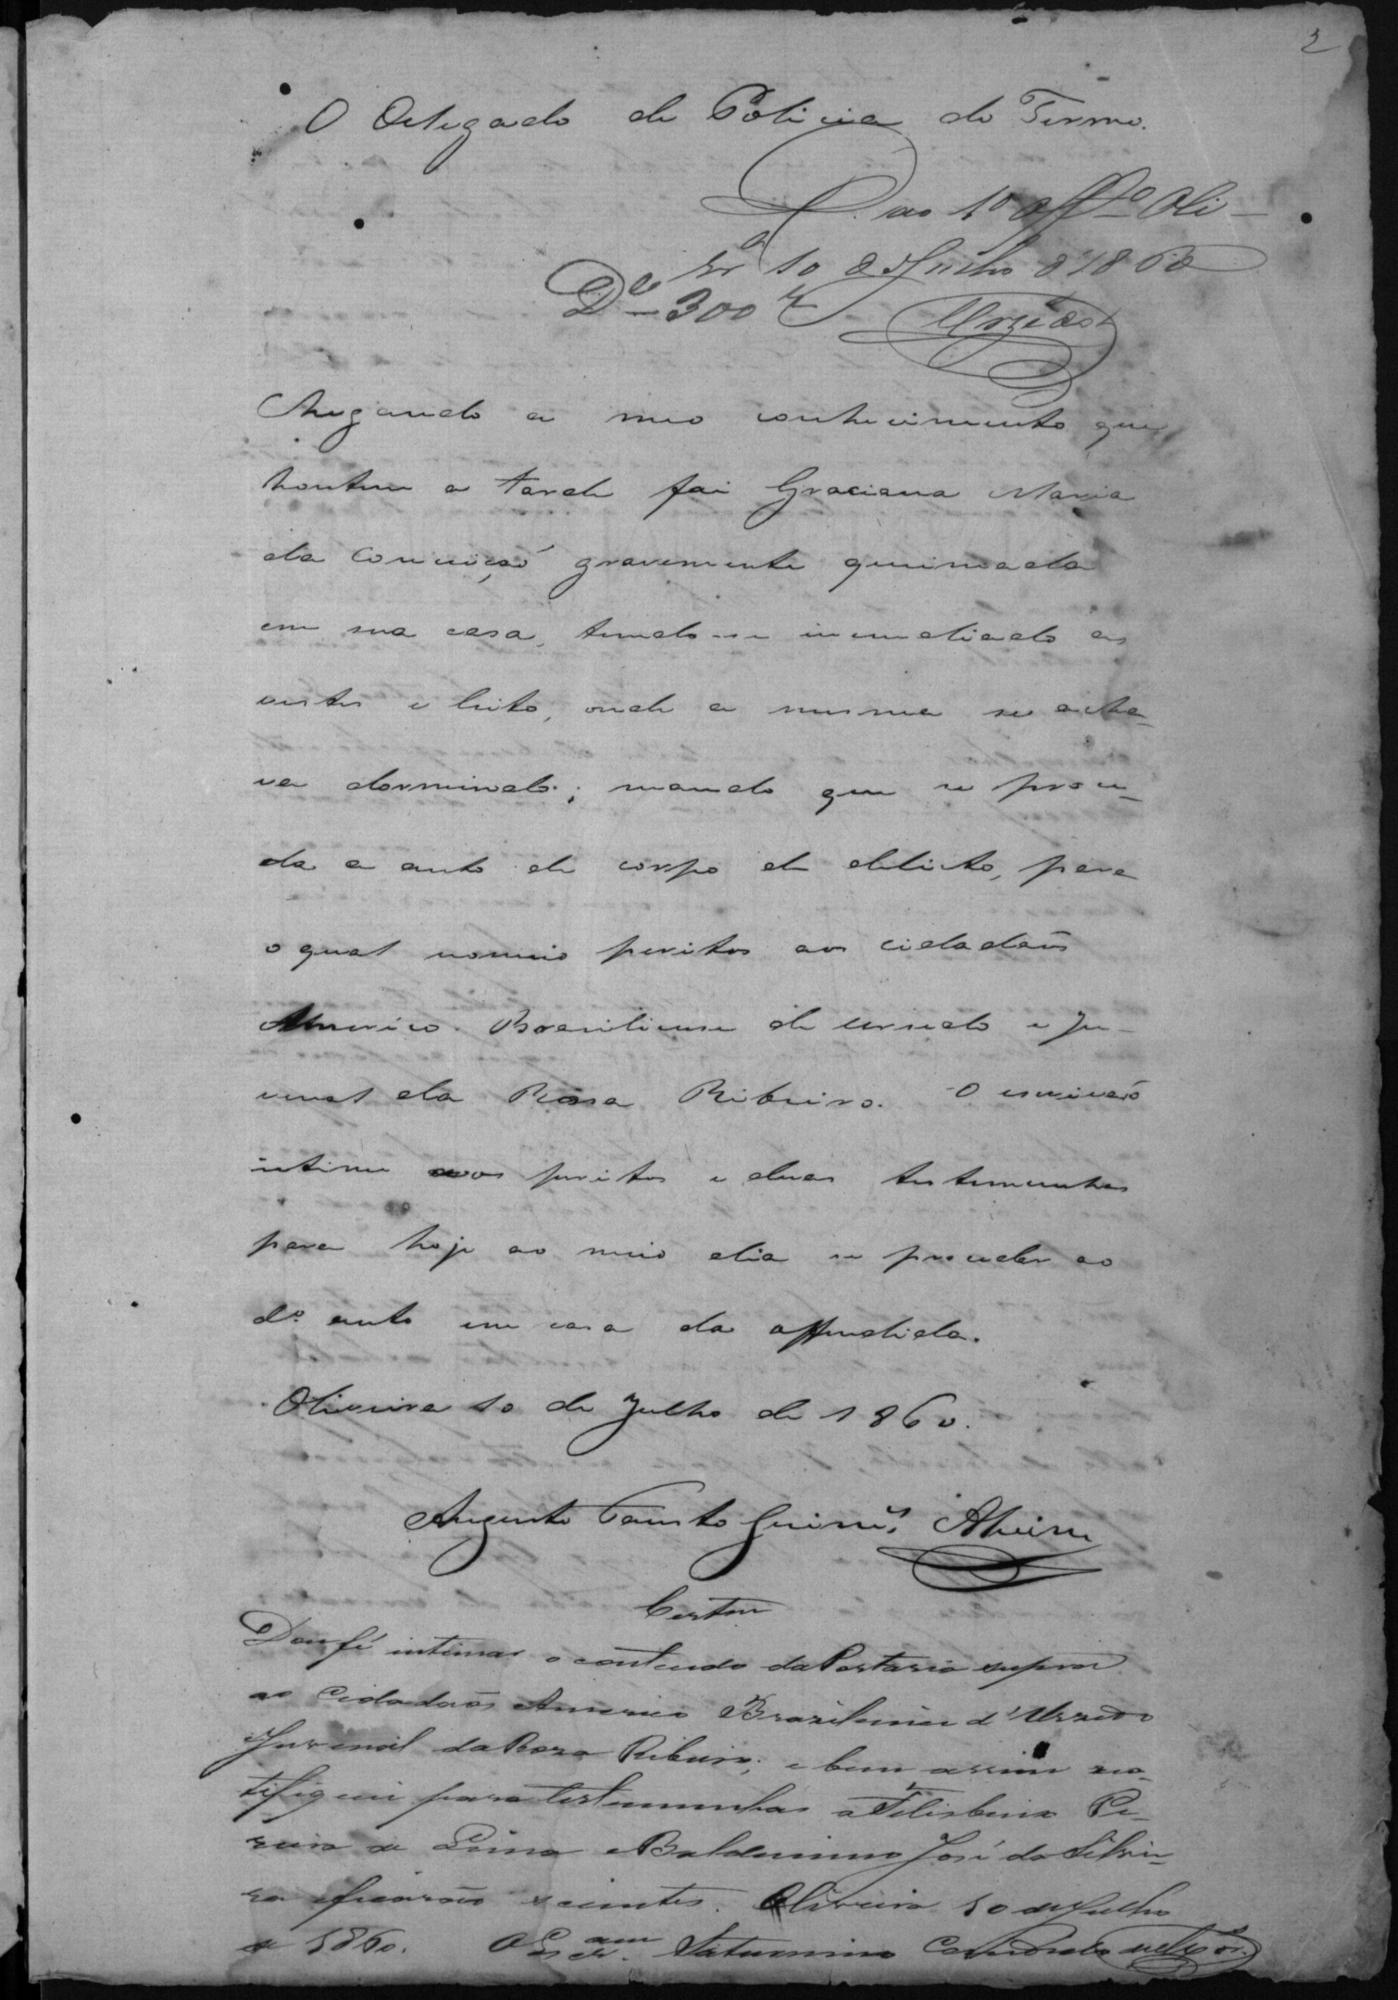 2
O Delegado de Policia do Termo.
D. ao 1º Off.º Oli-
vrª 10 de Julho d 1860
Dº 300 r
Urzedo
Chegando a meo conhecimento que
hontem a tarde foi Graciana Maria
da Conceição gravemente queimada
em sua casa, tendo-se incendiado as
vestes e leito, onde a mesma se acha-
va dormindo; mando que se proce-
da a auto de corpo de delicto, para
o qual nomeio peritos aos cidadãos
Americo Brasiliense de Urzedo e Ju-
venal da Rosa Ribeiro. O escrivão
intime aos peritos e duas testemunhas
para hoje ao meio dia se proceder ao
dº auto em casa da offendida.
Oliveira 10 de Julho de 1860.
Augusto Fausto Guimes Alvim
Certam
Dou fé intimar o contendo da Portaria supra
ao Cidadaos Americo Braziliense d'Urzedo
Juvenal da Roza Ribeiro; e bem assim no-
tifiquei para testemunhas a Felisbino Pe-
reira de Lima e Balduino José da Silvei-
ra e ficarão scientes. Oliveira 10 de Julho
de 1860. O Escram Saturnino